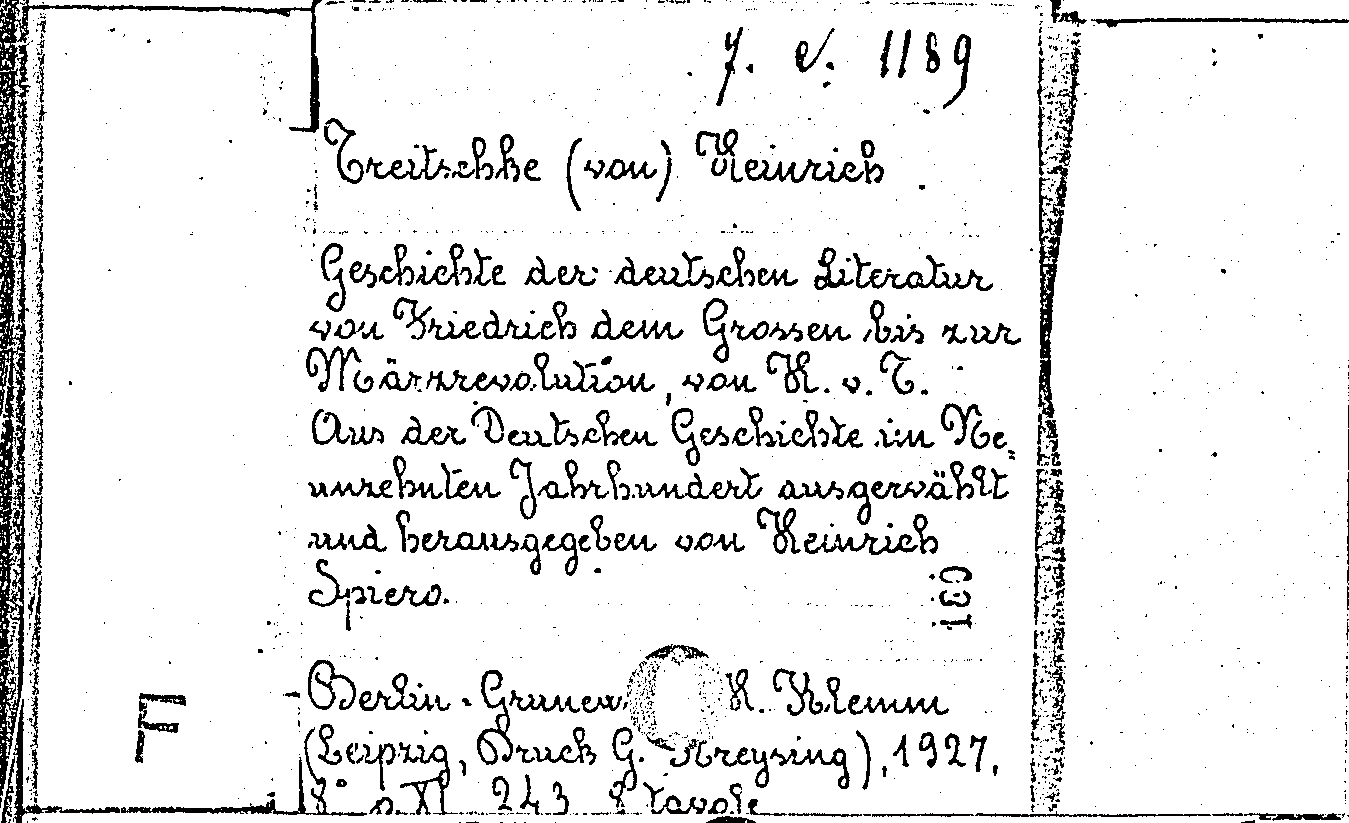 7. V. 1189
Treitschke (von) Heinrich
Geschichte der deutschen Literatur
von Friedrich dem Grossen bis zur
Märzrevolution, von H. v. T.
Aus der Deutschen Geschichte im Ne„
unzehnten Jahrhundert ausgewählt
und herausgegeben von Heinrich
Spiero.
Berlin-Grunew H. Klemm
(Leipzig, Druck G. Kreysing), 1927,
8° p. XI, 243, 8 tavole
F